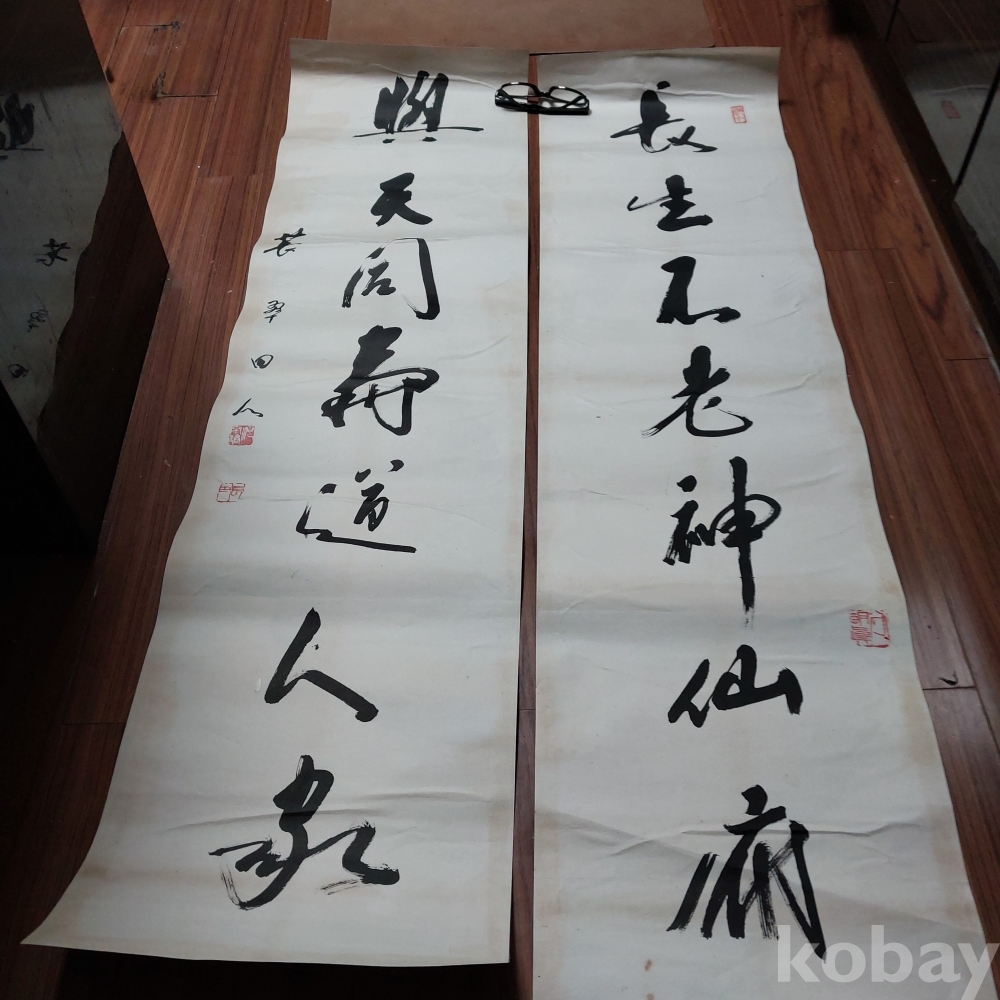 長生不老神仙府
與天同壽道人家
kobay